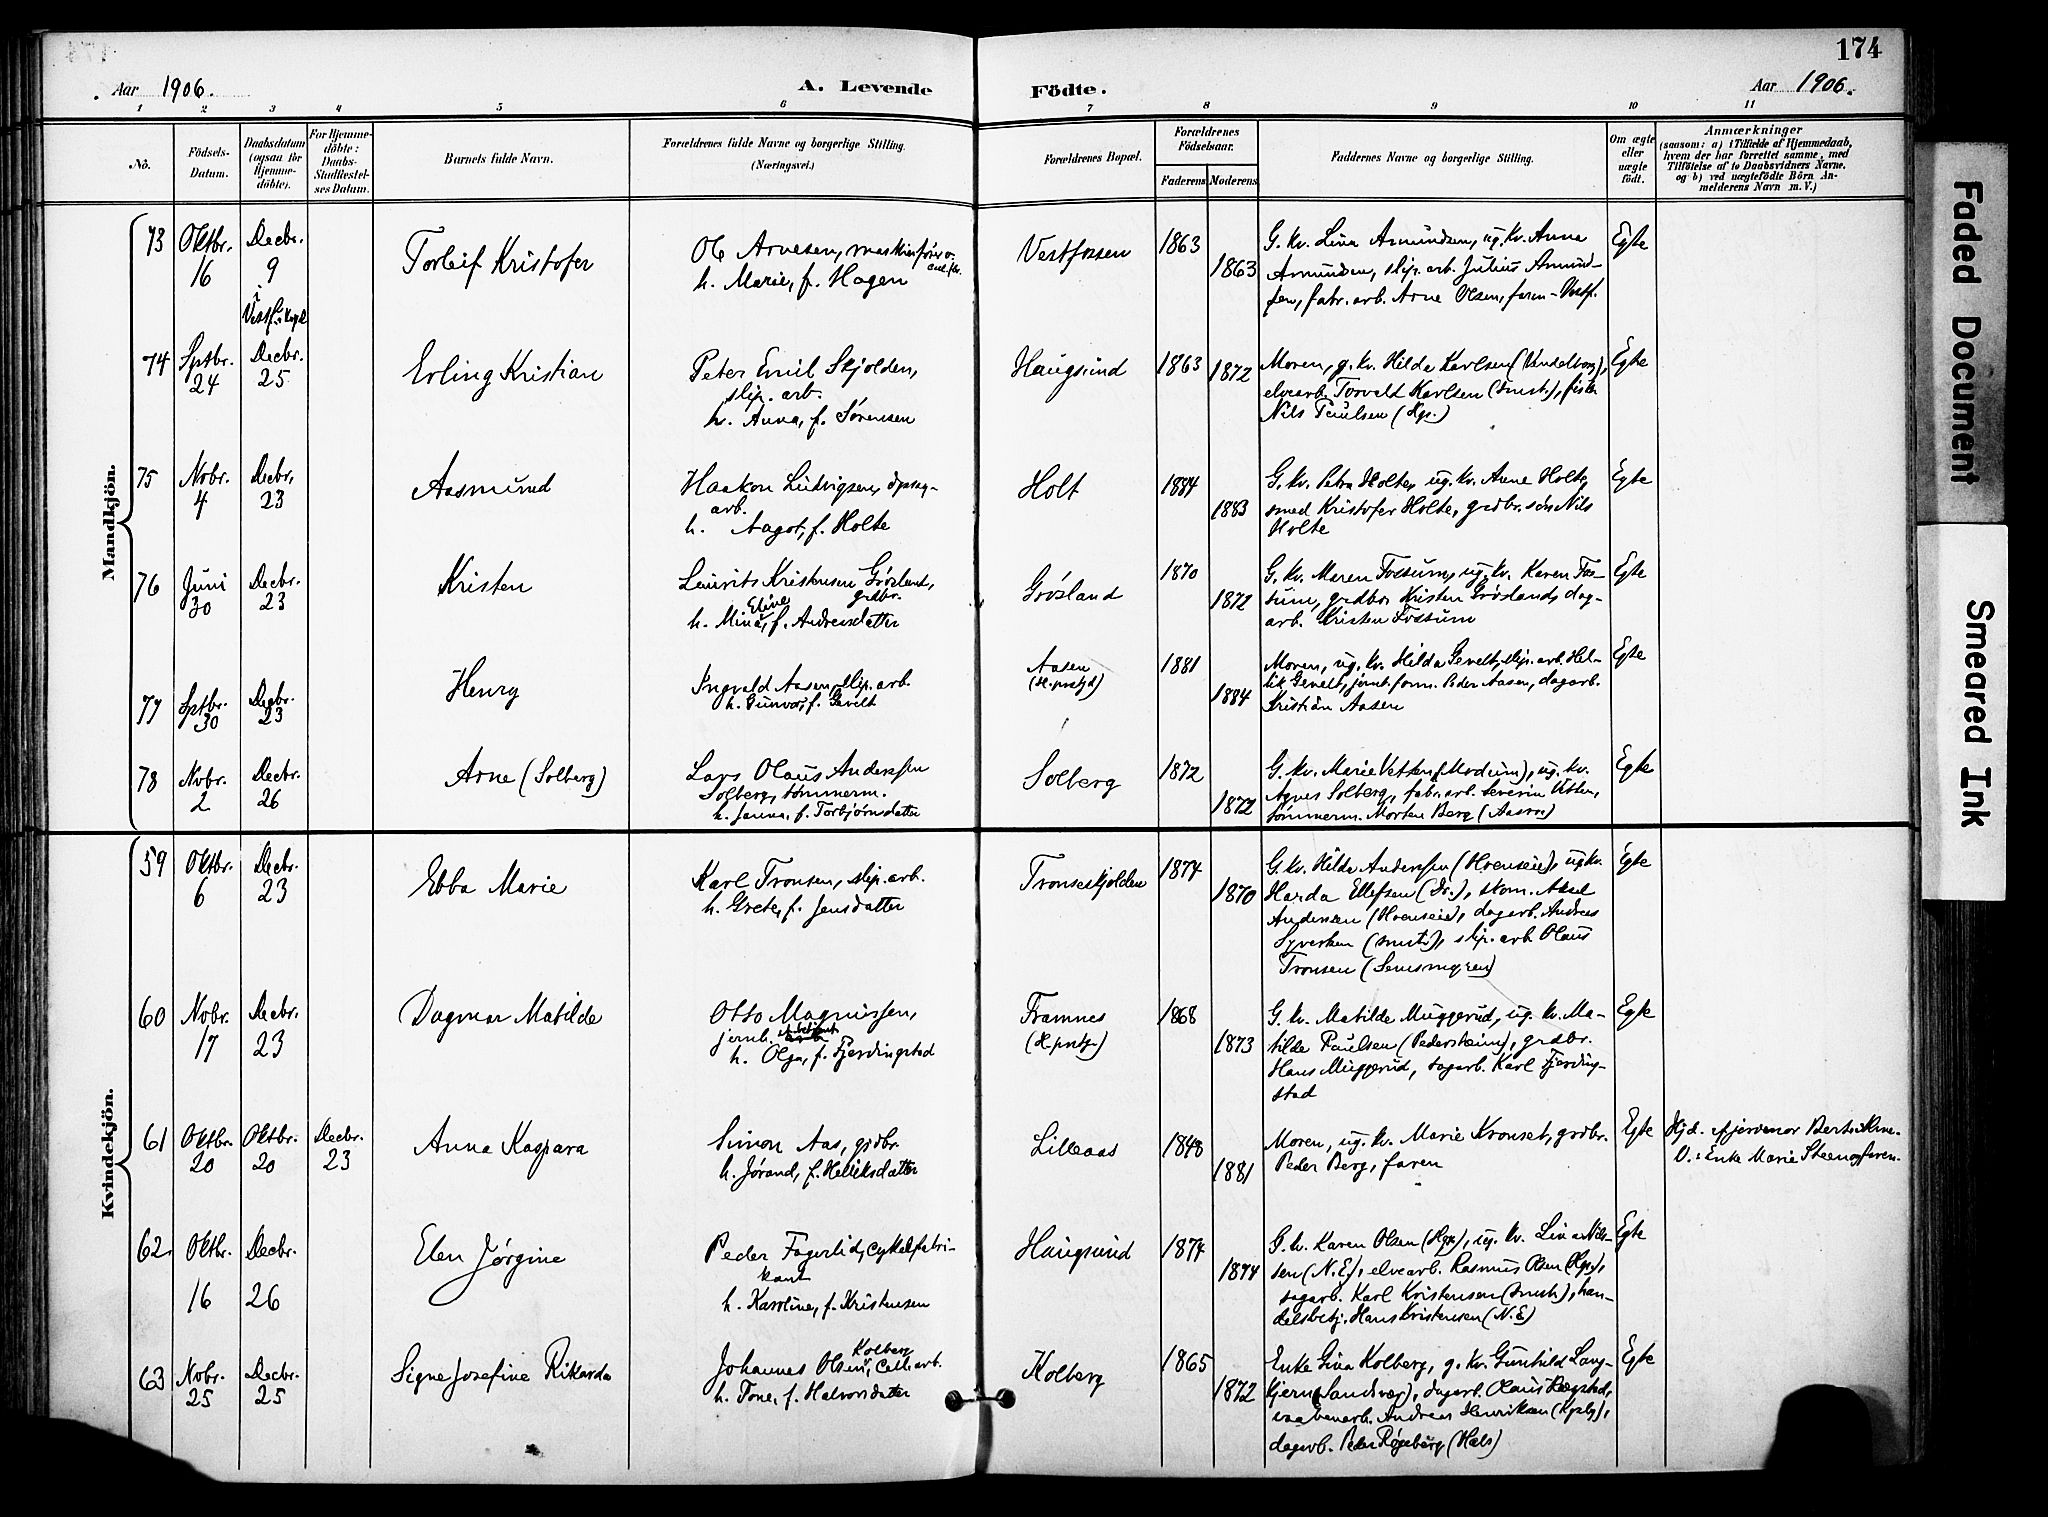 174
Aar 1906.
A. Levende
Födte.
Aar 1906.
1 2 3 4 5 6 7 8 9 10 11
No.
Födsels-
Datum.
Daabsdatum
(ogsaa for
Hjemme-
döbte).
For Hjemme-
döbte:
Daabs-
Stadfæstel-
ses Datum.
Barnets fulde Navn.
Forældrenes fulde Navne og borgerlige Stilling.
(Næringsvei.)
Forældrenes Bopæl.
Forældrenes
Födselsaar.
Faderens
Moderens
Faddernes Navne og borgerlige Stilling.
Om ægte
eller
uægte
födt.
Anmærkninger
(saasom: a) i Tilfælde af Hjemmedaab,
hvem der har forrettet samme, med
Tilföielse af to Daabsvidners Navne,
og b) ved uægtefödte Börn An-
melderens Navn m. V.)
Mandkjön.
73 Oktbr. 16
Decbr. 9
i Vestf. kapel
Torleif Kristofer
Ole Arnesen, maskinfører o.
h. Marie, f. Hagen
Vestfossen
1863
1863
G. kv. Lina Amundsen, ug. kv. Anna
Amundsen, slip. arb. Julius Amund-
sen, fabr. arb. Arne Olsen, faren - Vestf.
Egte
74 Sptbr. 24
Decbr. 25
Erling Kristian
Peter Emil Skjolden,
slip. arb.
h. Anna, f. Sørensen
Haugsund
1863
1872
Moren, g. kv. Hilda Karlsen (Vendelborg),
elvearb. Torvald Karlsen (smst.), fisker
Nils Paulsen (Hgs.)
Egte
75 Nobr. 4
Decbr. 23
Aasmund
Haakon Ludvigsen, opsag-
arb.
h. Aagot, f. Holte
Holt
1884
1883
G. kv. Petra Holte, ug. kv. Anne Holte,
smed Kristofer Holte, grdbr. søn Nils
Holte
Egte
76 Juni 30
Decbr. 23
Kristen
Laurits Kristensen Grøsland,
grdbr.
h. Mina Eline, f. Andreasdatter
Grøsland
1870
1872
G. kv. Maren Fossum, ug. kv. Karen Fos-
sum, grdbr. Kristen Grøsland, dag-
arb. Kristen Fossum
Egte
77 Sptbr. 30
Decbr. 23
Henry
Ingvald Aasen, slip. arb.
h. Gunvor, f. Gevelt
Aasen
(H. prstgj)
1881
1884
Moren, ug. kv. Hilda Gevelt, slip. arb. Hel-
lik Gevelt, jernb. form. Peder Aasen, dagarb.
Kristian Aasen
Egte
78 Nobr. 2
Decbr. 26
Arne (Solberg)
Lars Olaus Anderssen
Solberg, tømmerm.
h. Janna, f. Torbjørnsdatter
Solberg
1872
1872
G. kv. Marie Vetten (Modum), ug. kv.
Agnes Solberg, fabr. arb. Severin Vetten,
tømmerm. Morten Berg (Aasen)
Egte
Kvindekjön.
59 Oktbr. 6
Decbr. 23
Ebba Marie
Karl Tronsen, slip. arb.
h. Grete, f. Jensdatter
Tronseskjolden
1874
1870
G. kv. Hilda Anderssen (Hoenseie), ug. kv.
Harda Ellefsen (Dr.), skom. Aksel
Andersen (Hoenseie), dagarb. Andreas
Syversen (smst.), slip. arb. Olaus
Tronsen (Semsmyren)
Egte
60 Nobr. 17
Decbr. 23
Dagmar Matilde
Otto Magnussen,
jernb. betjent
h. Olga, f. Fjerdingstad
Framnes
(H. prstgj.)
1868
1873
G. kv. Matilde Muggerud, ug. kv. Ma-
tilde Paulsen (Pedersheim), grdbr.
Hans Muggerud, dagarb. Karl Fjerding-
stad
Egte
61 Oktbr. 20
Oktbr. 20
Decbr. 23
Anna Kaspara
Simon Aas, grdbr.
h. Jørand, f. Helliksdatter
Lilleaas
1848
1881
Moren, ug. kv. Marie Kronset, grdbr.
Peder Berg, faren
Egte
Hjd. af jordmor Berte
V.: Enke Marie Steen og faren.
62. Oktbr. 16
Decbr. 26
Elen Jørgine
Peder Fagerlid, cykelfabri-
kant
h. Karoline, f. Kristensen
Haugsund
1874
1874
G. kv. Karen Olsen (Hgs.), ug. kv. Lina Nil-
sen (N.E), elvearb. Rasmus Olsen (Hgs.),
dagarb. Karl Kristensen (smst.), han-
delsbetj. Hans Kristensen (N.E)
Egte
63 Nobr. 25
Decbr. 25
Signe Josefine Rikarda
Johannes Olsen Kolberg, cell. arb.
h. Tone, f. Halvorsdatter
Kolberg
1865
1872
Enke Gina Kolberg, g. kv. Gunhild Lang-
kjern (Sandsvær), dagarb. Olaus Hægstad,
vaabenarb. Andreas Henriksen (Kgsbg),
dagarb. Peder Røgeberg (Hals)
Egte
Faded Document
Smeared Ink